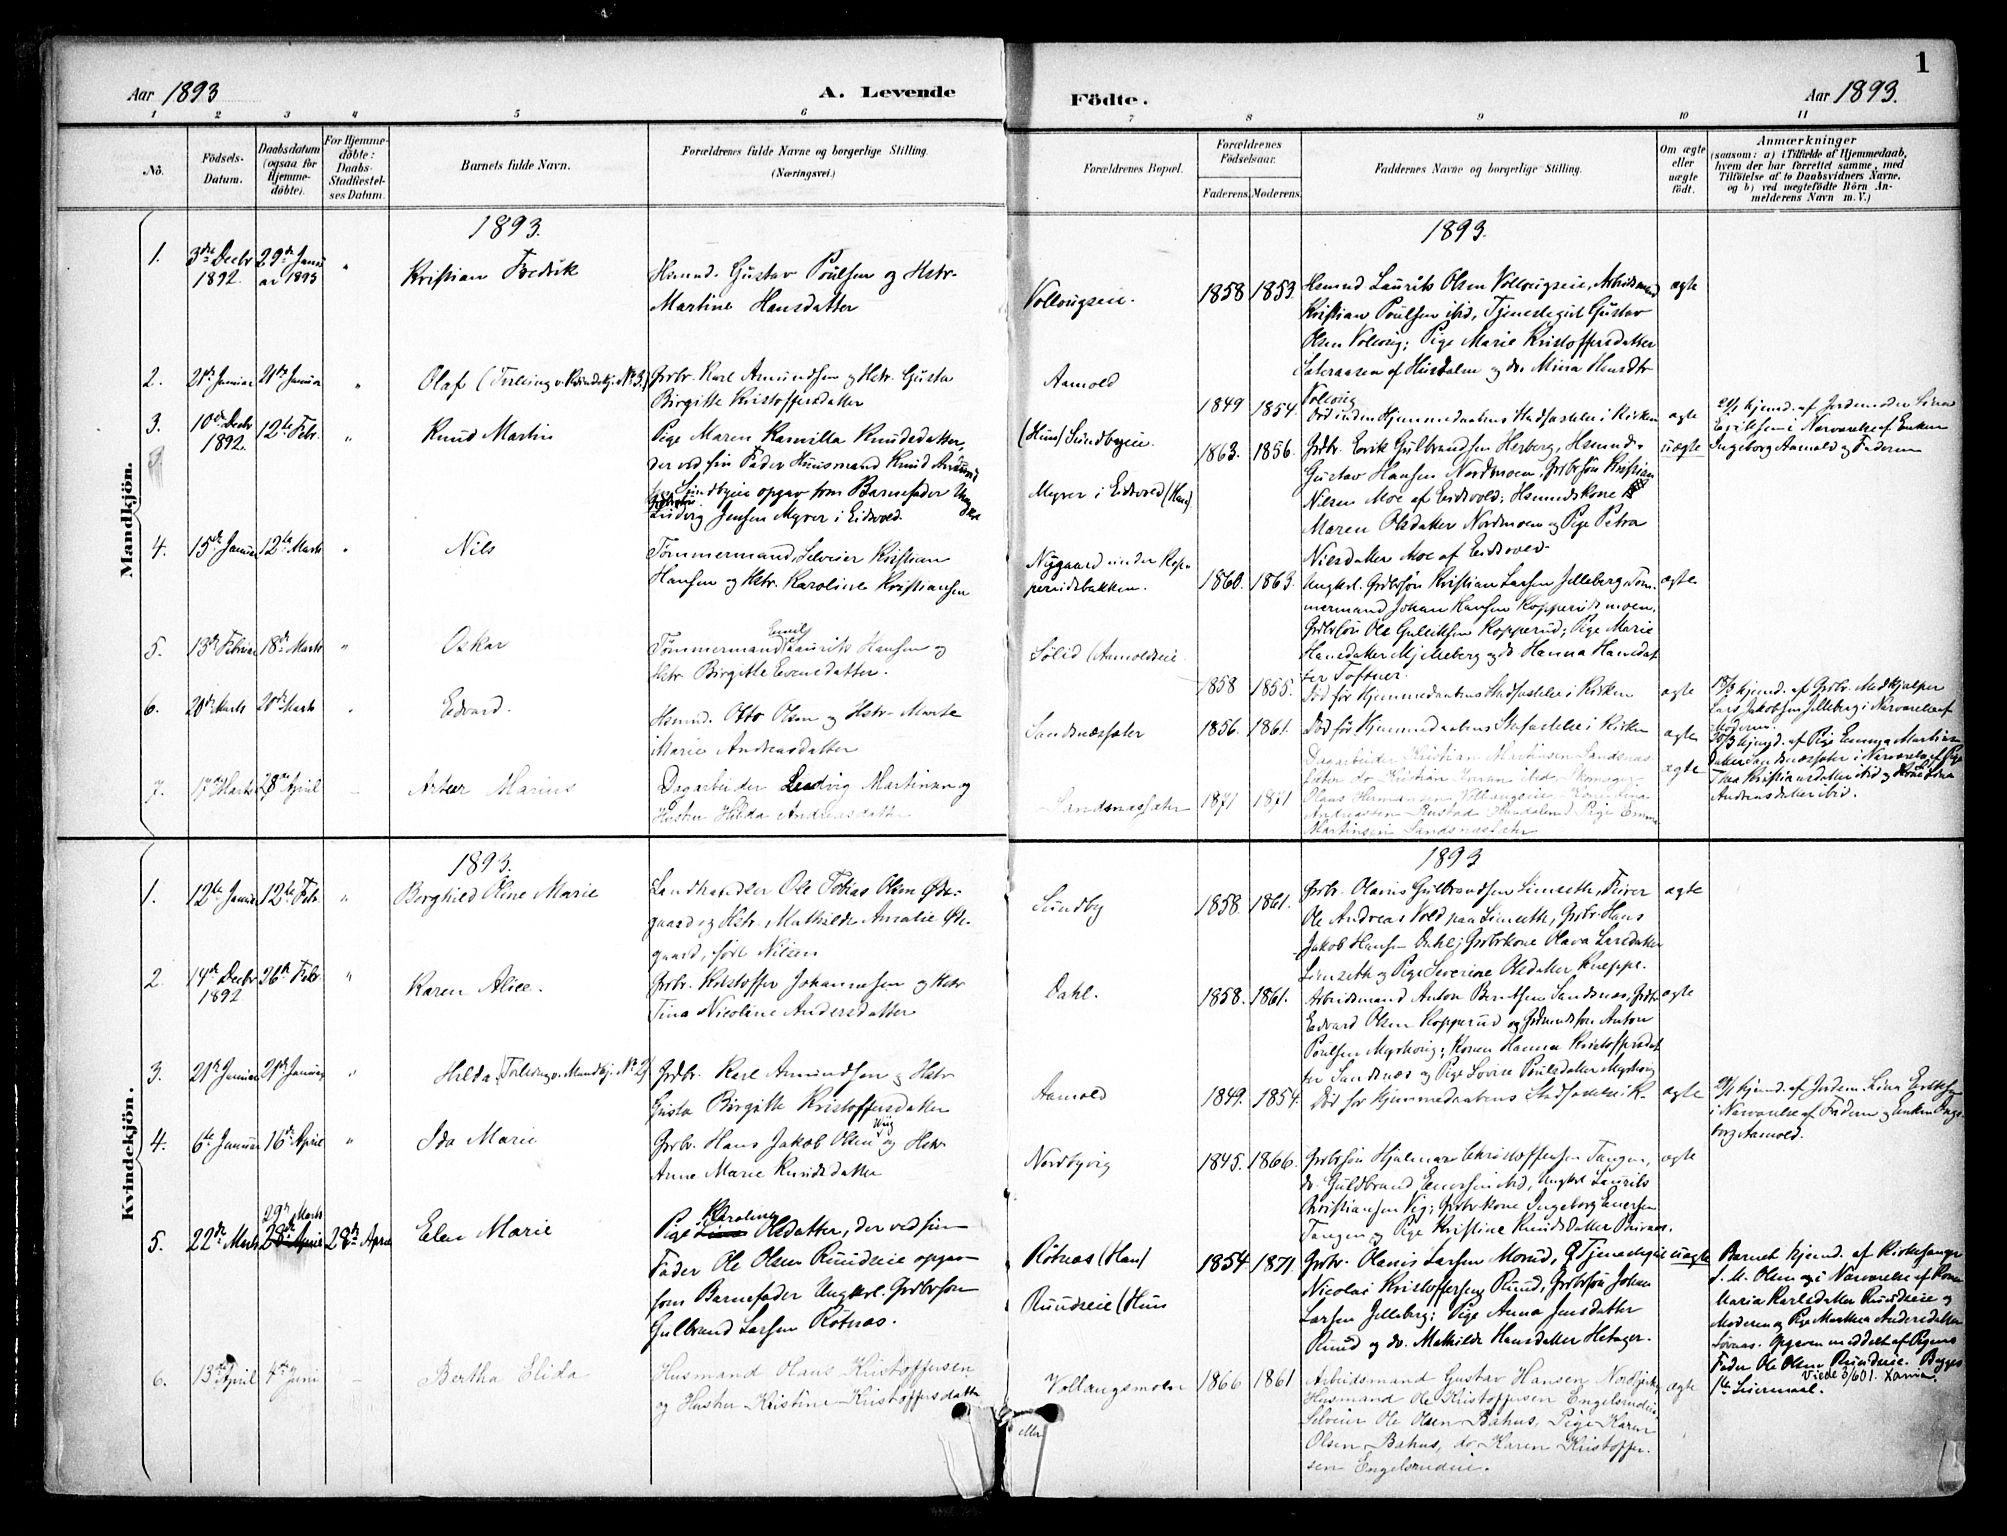 1
Aar 1893
A. Levende
Födte.
Aar 1893.
1 2 3 4 5 6 7 8 9 10 11
No.
Födsels-Datum.
Daabsdatum (ogsaa for Hjemmedöbte).
For Hjemmedöbte: Daabs-Stadfæstelses Datum.
Barnets fulde Navn.
Forældrenes fulde Navne og borgerlige Stilling.
(Næringsvei.)
Forældrenes Bopæl.
Forældrenes Födselsaar.
Faderens. Moderens.
Faddernes Navne og borgerlige Stilling.
Om ægte eller uægte födt.
Anmærkninger
(saasom: a) i Tilfælde af Hjemmedaab, hvem der har forrettet samme, med Tilföielse af to Daabsvidners Navne, og b) ved uægtefödte Börn Anmelderens Navn m. V.)
Mandkjön.
1893.
1893.
1. 3die Decbr 1892. 29de Januar 1893 " Kristian Fredrik
Hsmnd. Gustav Poulsen og Hstr.
Martine Hansdatter
Vollougseie. 1858 1853.
Hsmnd Laurits Olsen Vollougseie, Arbeidsmand
Kristian Poulsen ibid, Tjenestegut Gustav
Olsen Volloug; Pige Marie Kristoffersdatter
af Hurdalen og do. Mina Hansdtr
Volloug
ægte
2. 21de Januar 21de Januar " Olaf (Tvilling v. Kvindekj. No 3.)
Grdbr. Karl Amundsen og Hstr. Gusta
Birgitte Kristoffersdatter
Aamold 1849 1854.
Död inden Hjemmedaabens Stadfæstelse i Kirken ægte
21/1 hjemd. af Jordemoder Lina
i Nærværelse af Enken
Ingeborg Aamold og Faderen
3. 10de Decbr 1892. 12te Febr. " Knud Martin
Pige Maren Kamilla Knudsdatter,
der ved sin Fader Huusmand Knud
Sundbyeie opgav som Barnefader
Ludvig Jensen Myrer i Eidsvold.
(Hun) Sundbyeie.
Myrer i Eidsvold (Han)
1863. 1856.
Grdbr. Erik Gulbrandsen Herberg, Hsmnd.
Gustav Hansen Nordmoen, Grdbrsön Kristian
Nilsen Moe af Eidsvold; Hsmndskone
Maren Olsdatter Nordmoen og Pige Petra
Nilsdatter Moe af Eidsvold.
uægte
4. 15de Januar 12te Marts " Nils
Tömmermand, Selveier Kristian
Hansen og Hstr. Karoline Kristiansen
Nygaard under
1860. 1863.
Ungkrl. Grdbrsön Kristian Larsen Jelleberg, Tömmermand Johan Hansen Kopperudsmoen,
Grdbrsön Ole Gulliksen Kopperud; Pige Marie
Hansdatter Mjelleberg og do Hanna Hansdatter Toftner.
ægte
5. 13de Februar 18de Marts " Oskar
Tömmermand Emil Laurits Hansen og
Hstr. Birgitte Evensdatter.
Sölid (Aamoldseie
1858 1855.
Död för Hjemmedaabens Stadfæstelse i Kirken ægte
18/3 hjemd. af Grdbr. Medhjælper
Lars Jakobsen Jelleberg i Nærværelse af
Moderen.
6. 20de Marts 20de Marts " Edvard.
Hsmnd. Otto Olsen og Hstr. Marte
Marie Andreasdatter
Sandsnæssæter 1856. 1861.
Död för Hjemmedaabens Stadfæstelse i Kirken ægte
20/3 hjemd. af Pige Emma Martinsdatter Sandsnæssæter i Nærværelse af Pige
Thea Kristiansdatter ibid og
Andreasdatter ibid.
7. 17de Marts 18de April - Artur Marius
Dagarbeider Ludvig Martinsen og
Hustru Hilda Andreasdatter
Sandsnæssæter 1871 1871
Dagarbeider Kristian Martinsen Sandsnæs
do Kristian ibid, Skomager
Olaus Hermansen Vollaugseie
Andreassen Rustad Hurdalen, Pige Emma
Martinsen Sandsnæssæter
ægte
Kvindekjön.
1893.
1893
1. 12te Januar 12te Febr. " Borghild Oline Marie
Landhandler Ole Tobias Olsen Ödegaard og Hstr. Mathilde Amalie Ödegaard, född Nilsen
Sundby 1858. 1861.
Grdbr. Olaus Gulbrandsen Limseth,
Ole Andreas Vold paa Limseth, Grdbr. Hans
Jakob Hansen Dahl; Grdbrkone Olava Larsdatter
Limseth og Pige Severine Olsdatter
ægte
2. 14de Decbr 1892 26de Febr " Karen Alice.
Grdbr. Kristoffer Johannesen og Hstr
Tina Nicoline Andersdatter
Dahl. 1858. 1861.
Arbeidsmand Anton Berntsen Sandsnæs, Grdbr.
Edvard Olsen Kopperud og Grdmndssön Anton
Poulsen Myrhoug; Konen Hanna Kristoffersdatter Sandsnæs og Pige Lovise Poulsdatter Myrhoug
ægte
3. 21de Januar 21de Januar " Hilda (Tvilling v. Mandkj. No 2)
Grdbr. Karl Amundsen og Hstr
Gusta Birgitte Kristoffersdatter
Aamold 1849. 1854.
Död för Hjemmedaabens Stadfæstelse i K. ægte
21/1 hjemd. af Jordem. Lina
i Nærværelse af Faderen og Enken Ingeborg Aamold.
4. 6te Januar 16de April " Ida Marie
Grdbr. Hans Jakob Olsen Viig og Hstr.
Anne Marie Knudsdatter
Nordbyvig 1845. 1866.
Grdbrsön Hjalmar Christoffersen Tangen,
do. Guldbrand Enersen ibid, Ungkrl Laurits
Christiansen Vig; Grdbrkone Ingeborg Enersen
Tangen og Pige Kristine Knudsdatter
ægte
5. 22de Marts 29de Marts 28de April 28de April Elen Marie
Pige Karoline Olsdatter, der ved sin
Fader Ole Olsen Ruudseie opgav
som Barnefader Ungkrl. Grdbrsön
Gulbrand Larsen Rötnæs.
Rötnæs (Han)
Ruudseie (Hun
1854 1871.
Grdbr. Olaus Larsen Morud, Tjenestegut
Nicolai Kristoffersen Ruud, Grdbrsön Johan
Larsen Jelleberg; Pige Anna Jensdatter
Ruud og do. Mathilde Hansdatter Hetager.
uægte
Barnet hjemd. af Kirkesanger
S. M. Olsen i Nærværelse af Konen
Maria Karlsdatter Ruudseie og
Moderen og Pige Marthea Andersdatter
Opgaven meddelt af Pigens
Fader Ole Olsen Ruudseie. Begges
1ste Leiermaal. Viede 3/6 01.
6. 13de April 4de Juni - Bertha Elida
Husmand Hans Kristoffersen
og Hustru Kristine Kristoffersdatter
Vollangsmoen 1866 1861
Arbeidsmand Gustav Hansen
Husmand Ole Kristoffersen Engelsrudeie,
Selveier Ole Olsen Bahus, Pige Karen
Olsen Bahus, do Karen Kristoffersen Engelsrudeie.
ægte